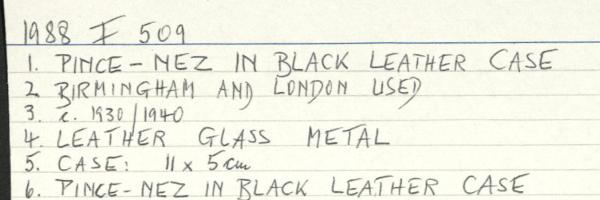 1988 F 509
1. PINCE-NEZ IN BLACK LEATHER CASE
2 BIRMINGHAM AND LONDON USED
3. c. 1930/1940
4. LEATHER GLASS METAL
5. CASE: 11 x 5cm
6. PINCE-NEZ IN BLACK LEATHER CASE